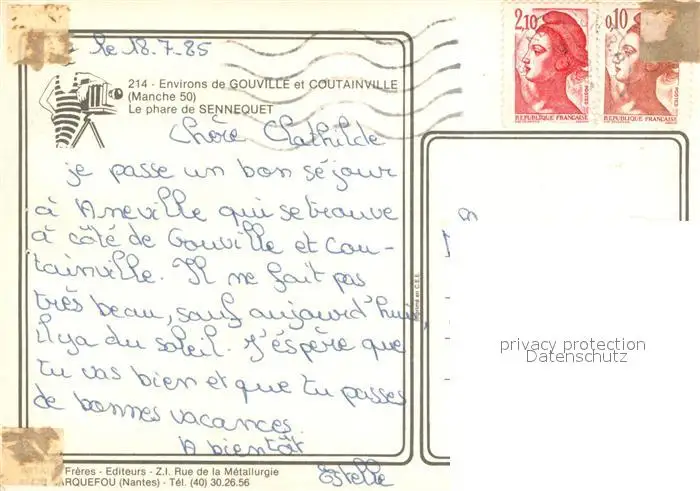 le 18.7.85
2,10
0,10
POSTES
REPUBLIQUE FRANÇAISE
REPUBLIQUE FRANÇAISE
214 - Environs de GOUVILLE et COUTAINVILLE
(Manche 50)
Le phare de SENNEQUET
Chère Clathilde
je passe un bon séjour
à Aneville qui se trouve
à côté de Gouville et Cou-
tainville. Il ne fait pas
très beau, sauf aujourd'hui,
il y a du soleil. J'éspère que
tu vas bien et que tu passes
de bonnes vacances.
A bientôt
Estelle
Imprimé en C.E.E.
privacy protection
Datenschutz
Frères - Editeurs - Z.I. Rue de la Métallurgie
ARQUEFOU (Nantes) - Tél. (40) 30.26.56